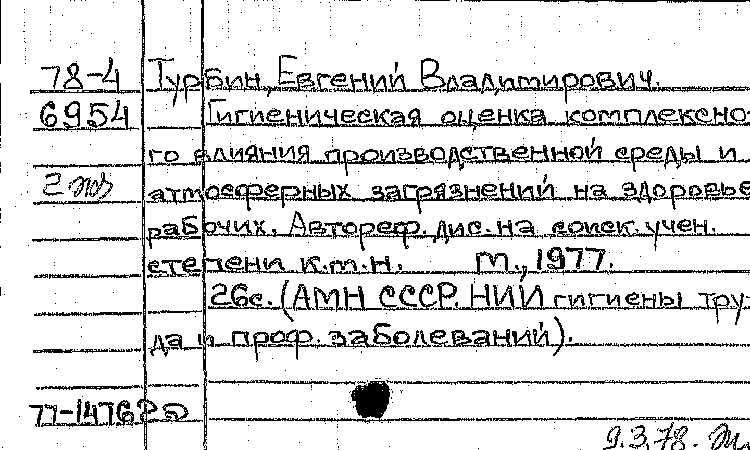 78-4 Турбин, Евгений Владимирович.
6954 Гигиеническая оценка комплексно-
го влияния производственной среды и
2 экз атмосферных загрязнений на здоровье
рабочих. Автореф. дис. на соиск. учен.
степени к.м.н. М., 1977.
26с. (АМН СССР. НИИ гигиены тру-
да и проф. заболеваний).
77-14762
9.3.78.